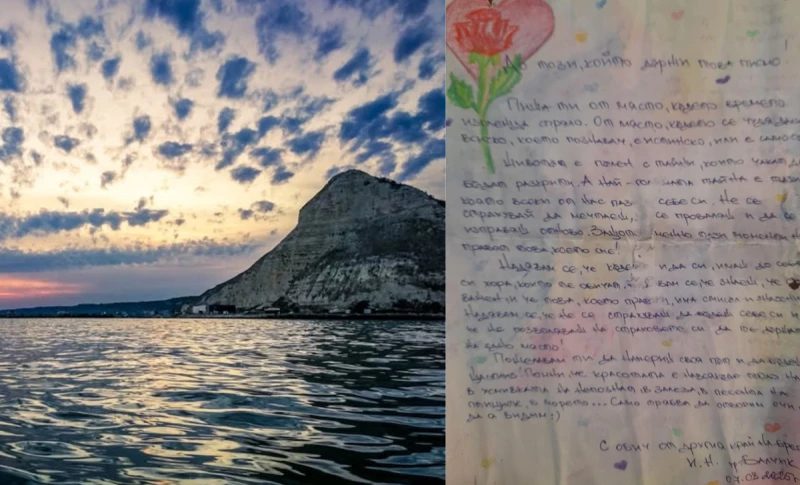 До този, който държи това писмо!
Пиша ти от място, където времето
изглежда спряло. От място, където се
всичко, което познавам, е истинско, или е само
Животът е пълен с тайни, които чакат да
бъдат разкрити. А най- тайна е тази,
която всеки от нас пази себе си. Не се
страхувай да мечтаеш, се проваляш и да се
изправяш отново. Защото именно тези моменти
правят това, което сме!
Надявам се, че където и да си, имаш до себе
си хора, които те обичат. Надявам се, че знаеш, че
важен, и че това, което правиш, има смисъл и
Надявам се, че не се страхуваш да бъдеш себе си и
че не позволяваш на страховете си да те
на едно място!
Пожелавам ти да намериш своя път и да
Помни, че красотата е навсякъде около
в усмивката на непознат, в залеза, в песента на
птиците, в морето... Само трябва да отвориш очи
да я видиш :)
С обич от другия край на
И. Н. гр. Балчик
07.03.2025г